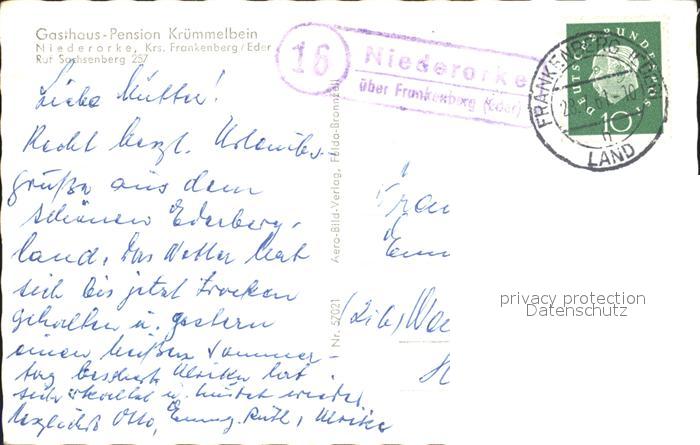 Gasthaus-Pension Krümmelbein
Niederorke, Krs. Frankenberg/Eder
Ruf Sachsenberg 257
16
Niederorke
über Frankenberg (Eder)
FRANKENBERG (EDER)
LAND
DEUTSCHE BUNDESPOST
10
Liebe Mutter!
Recht herzl. Urlaubs-
grüße aus dem
schönen Ederberg-
land. Das Wetter hat
sich bis jetzt trocken
gehalten u. gestern
einen heißen Sommer-
tag beschert. Ulrike hat
sich erkältet u. hustet wieder.
Herzlichst Otto, Emmy, Ruth, Ulrike
Aero-Bild-Verlag, Fulda-Bronnzell
Nr. 57021
Frau
Em
privacy protection
Datenschutz